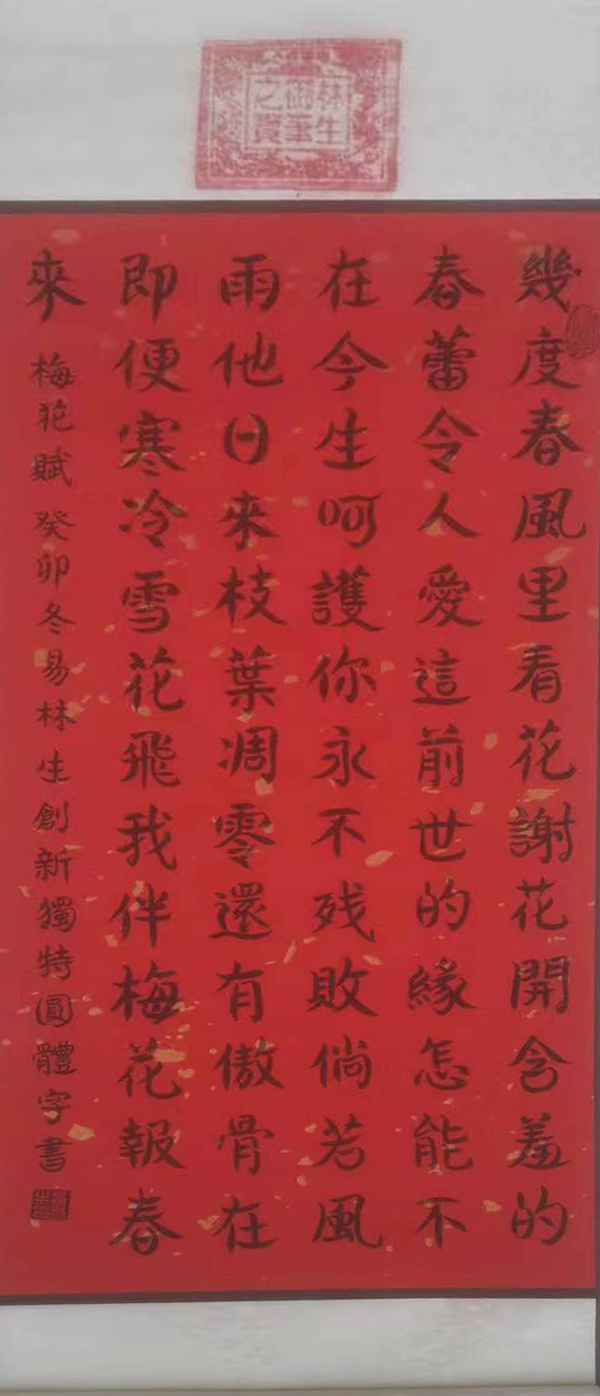 幾度春風里看花謝花開含羞的
春蕾令人愛這前世的緣怎能不
在今生呵護你永不残敗倘若風
雨他日來枝葉凋零還有傲骨在
即便寒冷雪花飛我伴梅花報春
來
梅花賦 癸卯冬易林生創新獨特圓體字書